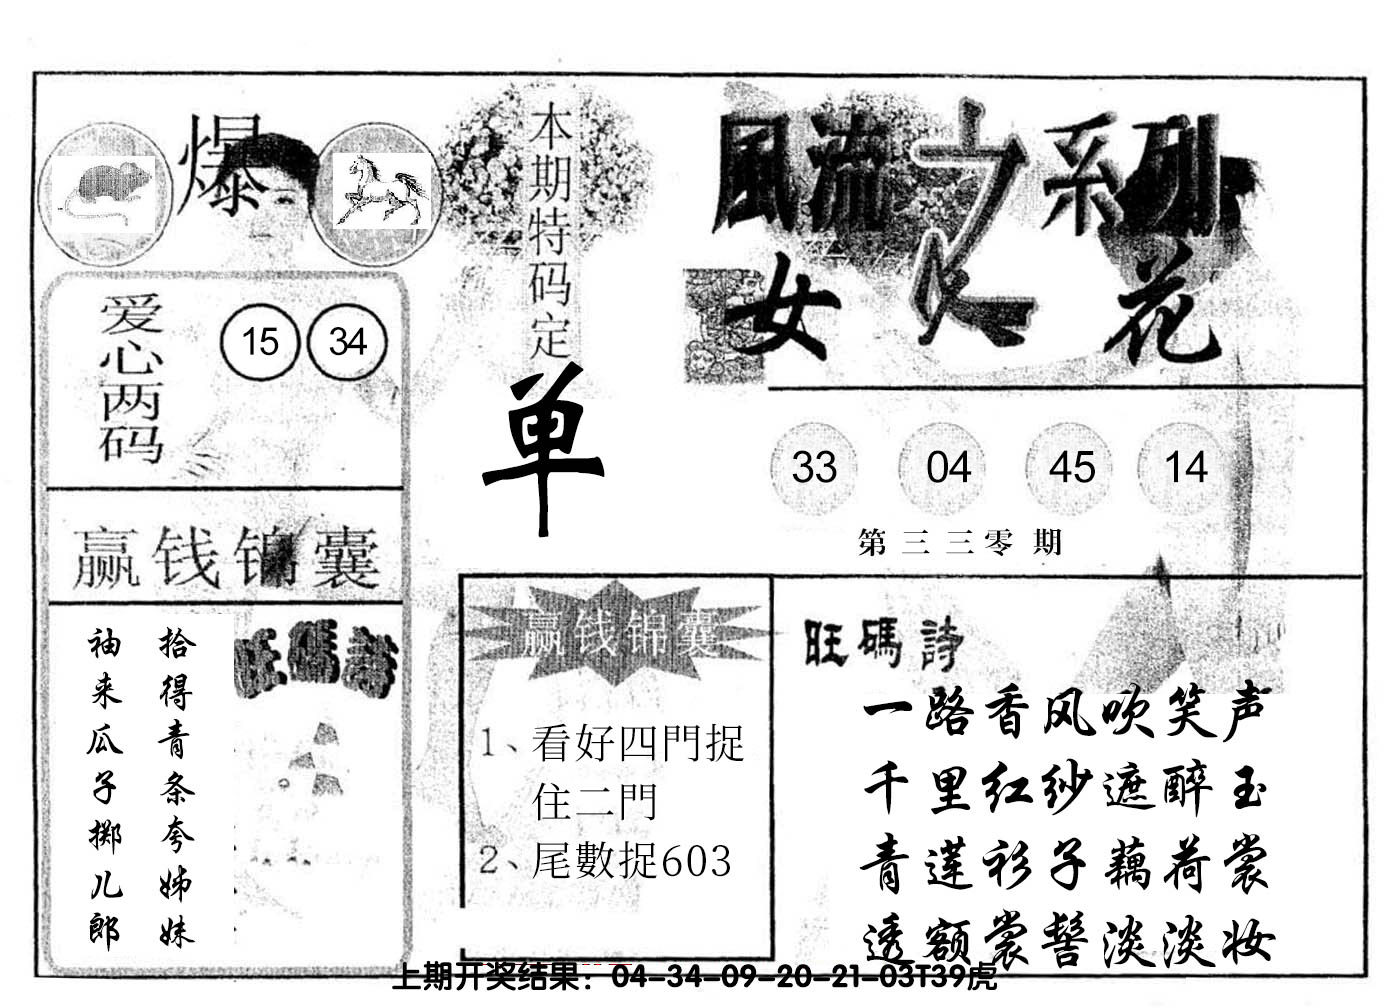 爆
本期特码定
单
風流之系列
女人花
爱心两码
15 34
33 04 45 14
第三三零期
赢钱锦囊
拾得青条夸姊妹
袖来瓜子掷儿郎
旺碼詩
赢钱锦囊
1、看好四門捉
住二門
2、尾數捉603
旺碼詩
一路香风吹笑声
千里红纱遮醉玉
青莲衫子藕荷裳
透额裳髻淡淡妆
上期开奖结果：04-34-09-20-21-03T39虎